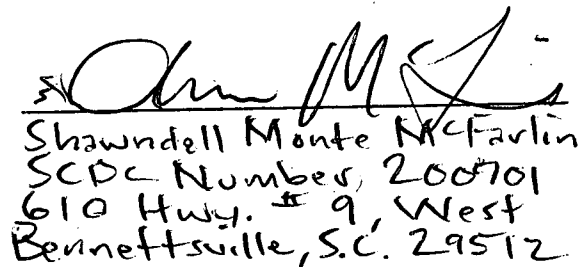 Shawndell Monte McFarlin
SCDC Number, 200701
610 Hwy. # 9, West
Bennettsville, S.C. 29512